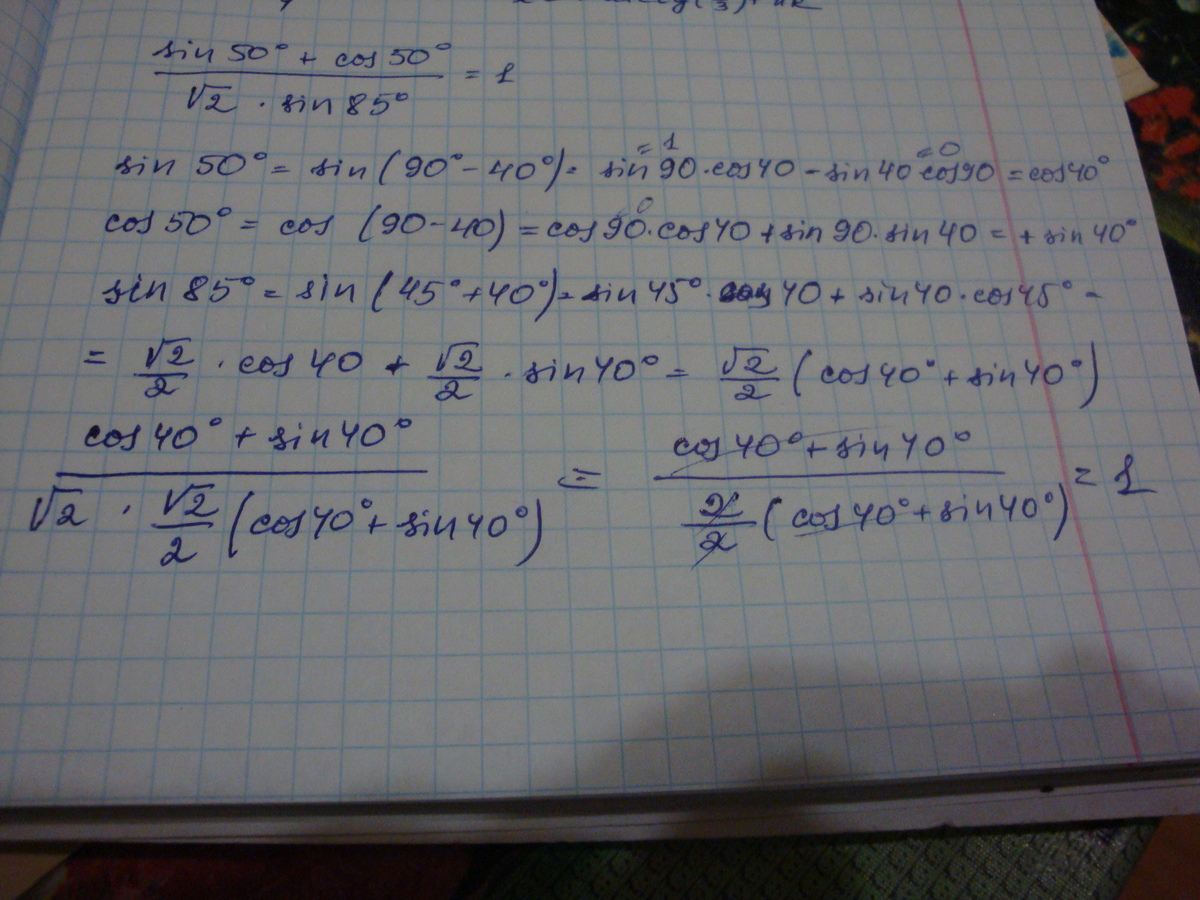 sin 50° + cos 50°
√2 · sin 85° = 1
= 1 = 0
sin 50° = sin (90° - 40°) = sin 90 · cos 40 - sin 40 cos 90 = cos 40°
0
cos 50° = cos (90 - 40) = cos 90 · cos 40 + sin 90 · sin 40 = + sin 40°
sin 85° = sin (45° + 40°) = sin 45° · cos 40 + sin 40 · cos 45° =
= √2/2 · cos 40 + √2/2 · sin 40° = √2/2 (cos 40° + sin 40°)
cos 40° + sin 40° cos 40° + sin 40°
√2 · √2/2 (cos 40° + sin 40°) = 2/2 (cos 40° + sin 40°) = 1